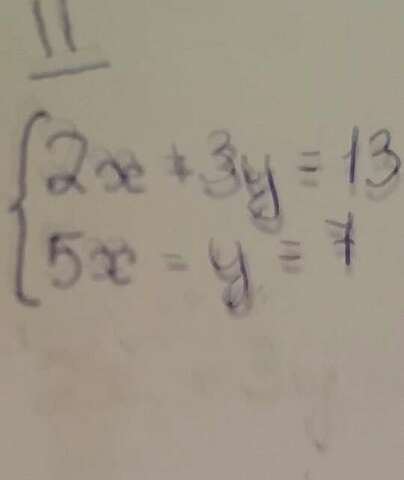 11
2x + 3y = 13
5x = y = 7